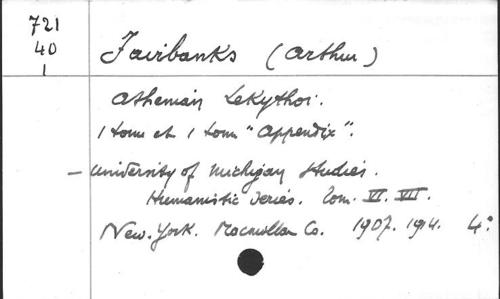 721
40
1
Fairbanks (Arthur)
Athenian Lekythoi.
1 tom et 1 tom "Appendix".
- University of Michigan Studies.
Humanistic Series. Tom. VI. VII.
New. York. Macmillan Co. 1907. 1914. 4°